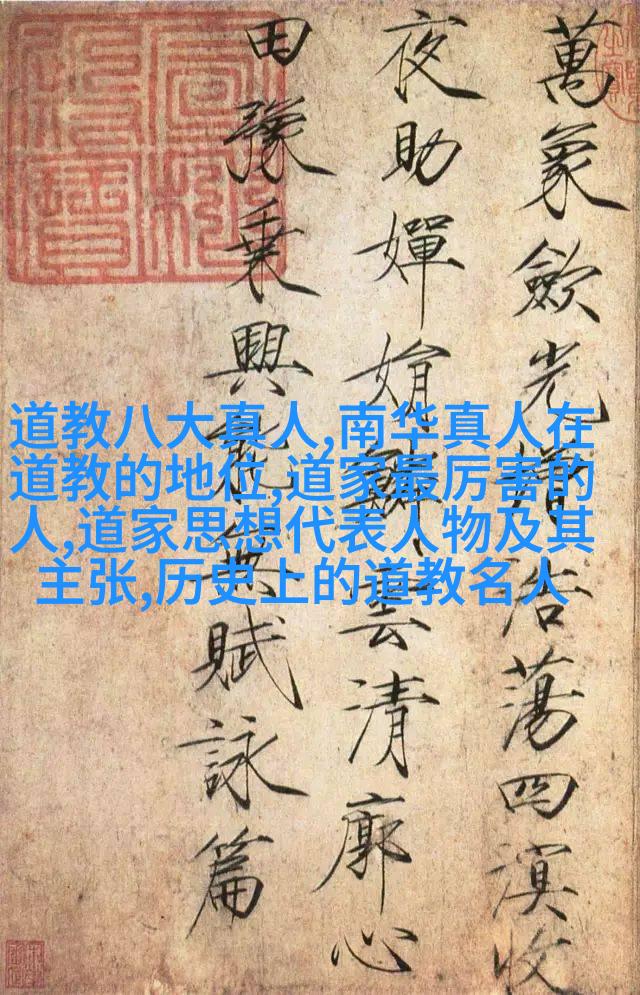 萬象歛光增浩蕩四溟收
夜助嬋娟鮮雲清廓心
田豫乗興能無賦詠篇
道教八大真人,南华真人在
道教的地位,道家最厉害的
人,道家思想代表人物及其
主张,历史上的道教名人